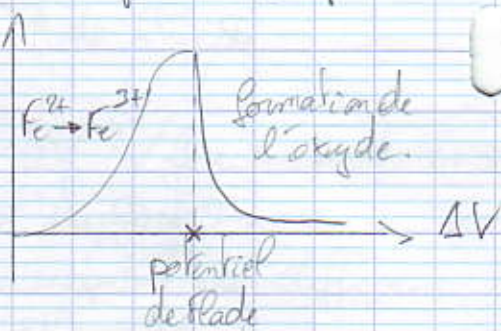 Fe²⁺→Fe³⁺
formation de
l'oxyde.
ΔV
potentiel
de Flade